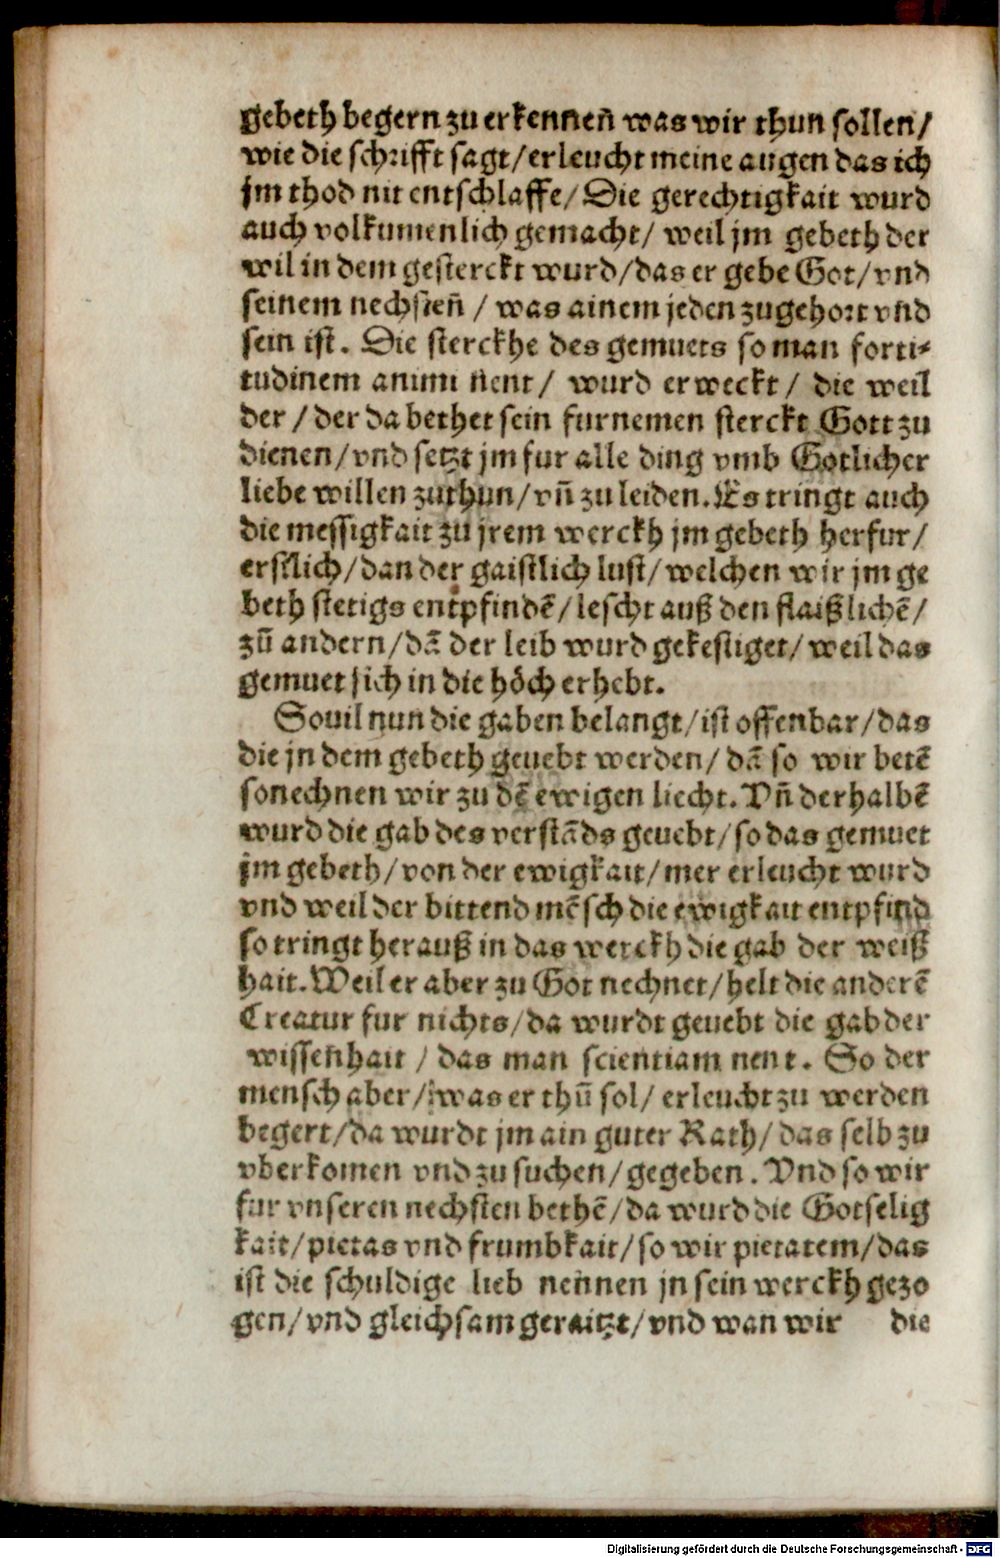 gebeth begern zu erkennen̄ was wir thun sollen/
wie die schrifft sagt/erleucht meine augen das ich
jm thod nit entschlaffe/ Die gerechtigkait wurd
auch volkumenlich gemacht/ weil jm gebeth der
wil in dem gesterckt wurd/das er gebe Got/vnd
seinem nechsten̄ / was ainem jeden zugehort vnd
sein ist. Die sterckhe des gemuets so man forti-
tudinem animi nent/ wurd erweckt/ die weil
der / der da bethet sein furnemen sterckt Gott zu
dienen/vnd setzt jm fur alle ding vmb Gotlicher
liebe willen zuthun/vn̄ zu leiden. Es tringt auch
die messigkait zu jrem werckh jm gebeth herfur/
erstlich/dan der gaistlich lust/welchen wir jm ge
beth stetigs entpfindē/lescht auß den flaißlichē/
zū andern/dā der leib wurd gekestiget/weil das
gemuet sich in die höch erhebt.
Souil nun die gaben belangt/ist offenbar/das
die jn dem gebeth geuebt werden/ dā so wir betē
sonechnen wir zu dē ewigen liecht. Vn̄ derhalbē
wurd die gab des verstāds geuebt/so das gemuet
jm gebeth/von der ewigkait/mer erleucht wurd
vnd weil der bittend mēsch die ewigkait entpfind
so tringt herauß in das werckh die gab der weiß
hait. Weil er aber zu Got nechnet/helt die anderē
Creatur fur nichts/da wurdt geuebt die gab der
wissen̄hait / das man scientiam nent. So der
mensch aber/was er thū sol/ erleucht zu werden
begert/da wurdt jm ain guter Rath/das selb zu
vberkomen vnd zu suchen/gegeben. Vnd so wir
fur vnseren nechsten bethē/da wurd die Gotselig
kait/pietas vnd frumbkait/so wir pietatem/das
ist die schuldige lieb nen̄nen jn sein werckh gezo
gen/vnd gleichsam geraitzt/vnd wan wir die
Digitalisierung gefördert durch die Deutsche Forschungsgemeinschaft - DFG